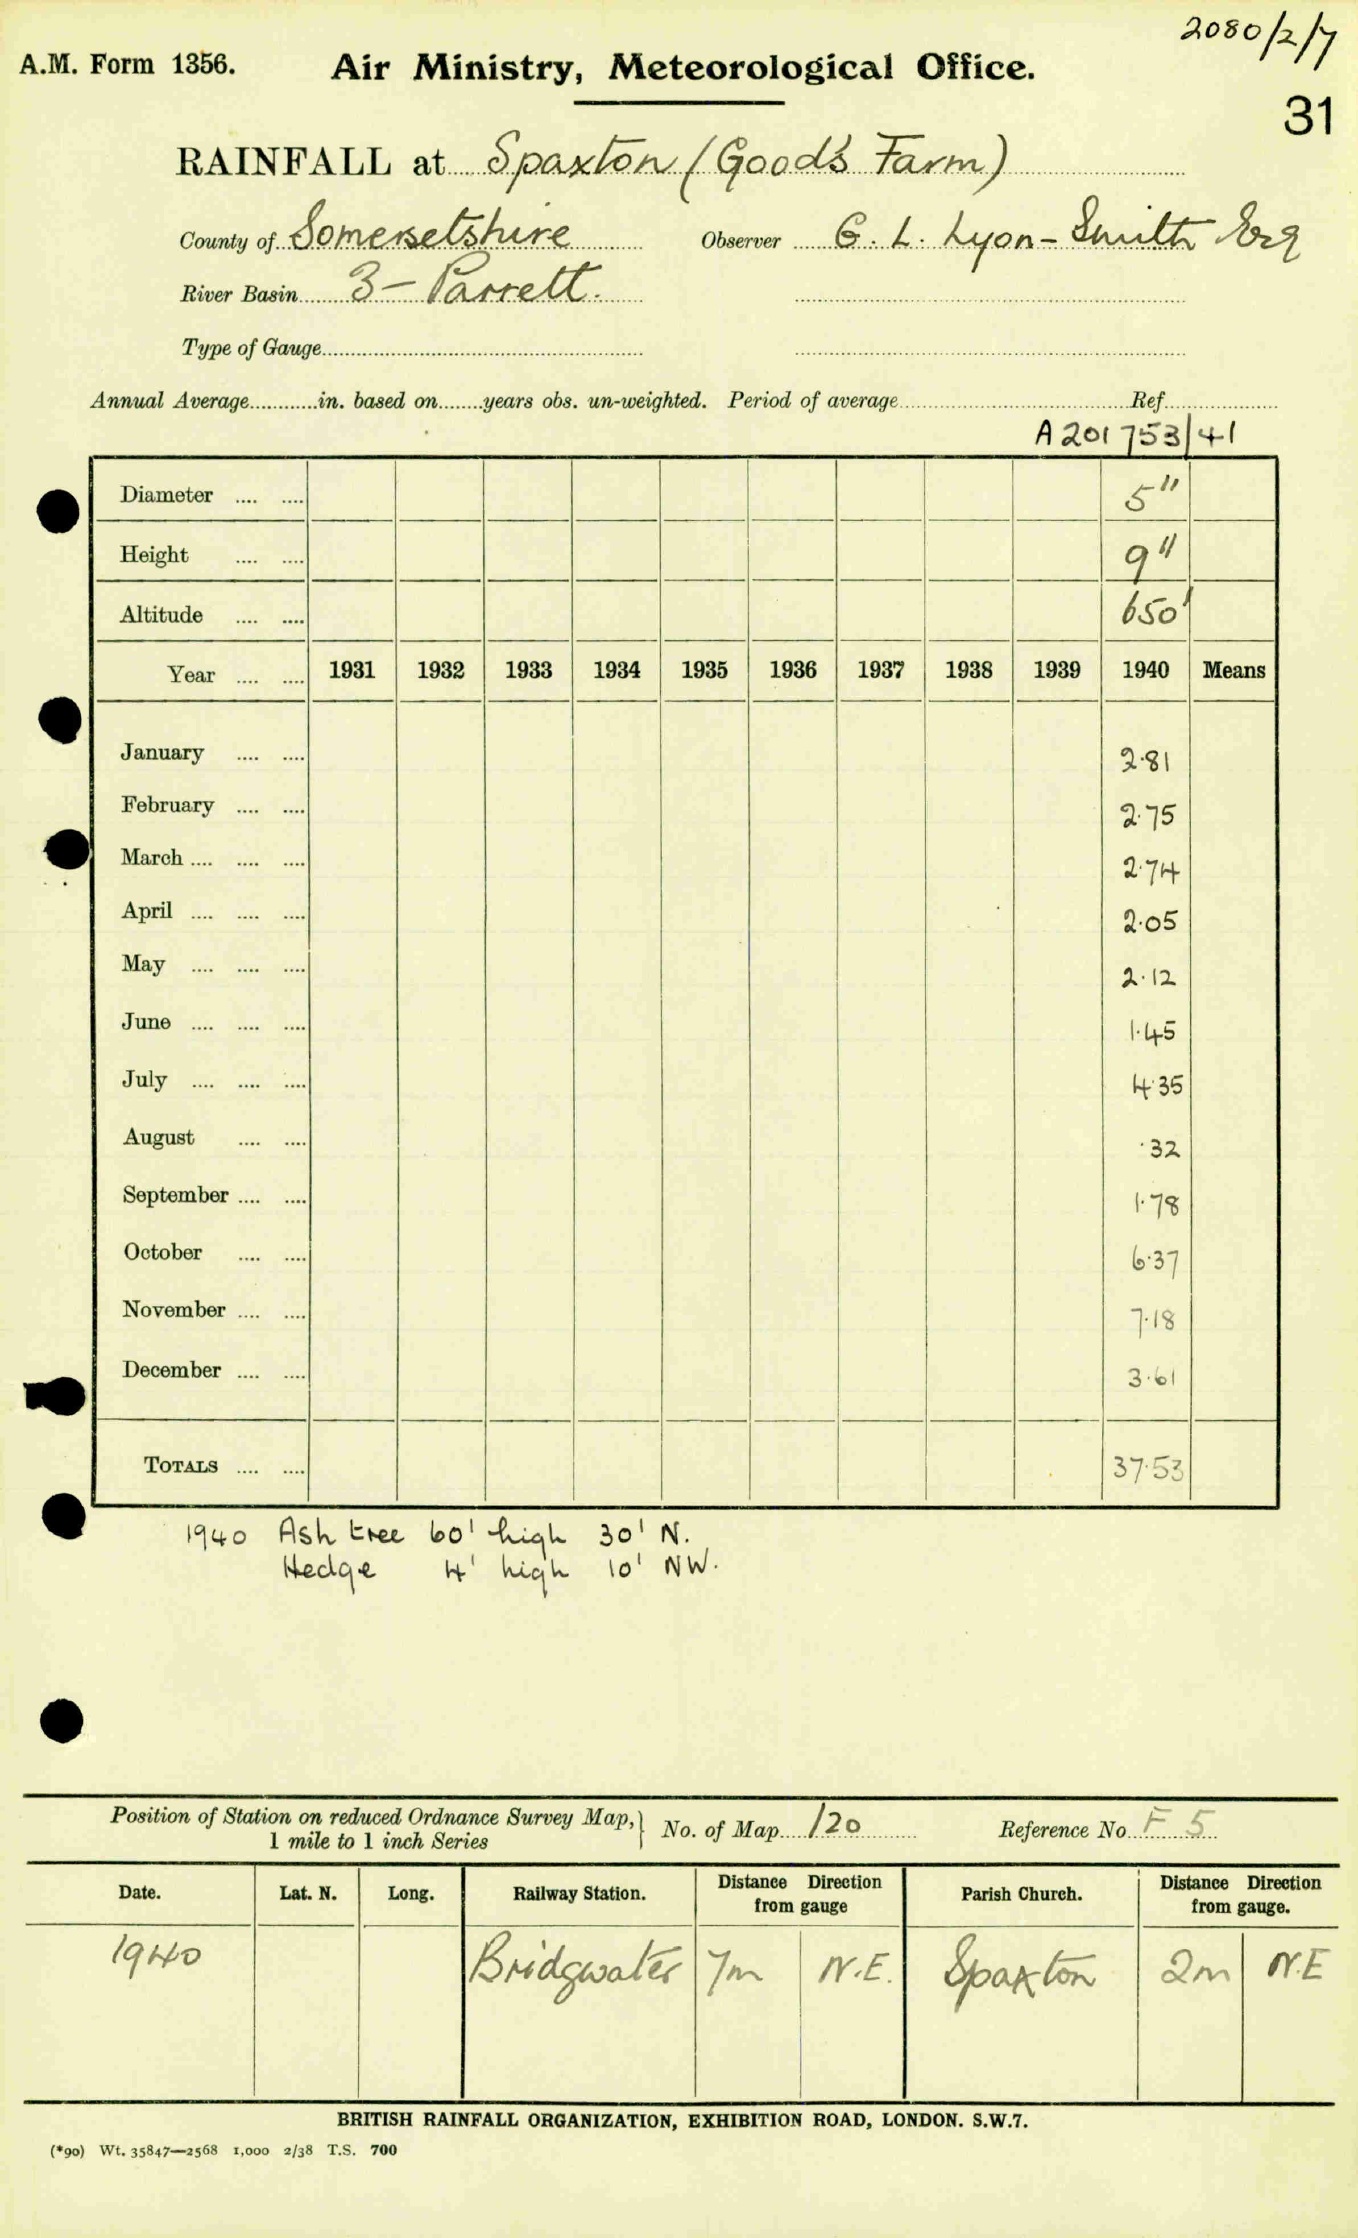 2080/2/7
A.M. Form 1356. Air Ministry, Meteorological Office.
31
RAINFALL at Spaxton (Good's Farm)
County of Somersetshire Observer G. L. Lyon-Smith Esq
River Basin 3 - Parrett.
Type of Gauge
Annual Average in. based on years obs. un-weighted. Period of average Ref.
A 201 753/41
Diameter 5"
Height 9"
Altitude 650'
Year 1931 1932 1933 1934 1935 1936 1937 1938 1939 1940 Means
January 2.81
February 2.75
March 2.74
April 2.05
May 2.12
June 1.45
July 4.35
August .32
September 1.78
October 6.37
November 7.18
December 3.61
TOTALS 37.53
1940 Ash tree 60' high 30' N.
Hedge 4' high 10' NW.
Position of Station on reduced Ordnance Survey Map, 1 mile to 1 inch Series } No. of Map 120 Reference No. F 5
Date. Lat. N. Long. Railway Station. Distance Direction from gauge Parish Church. Distance Direction from gauge.
1940 Bridgwater 7m N.E. Spaxton 2m N.E
BRITISH RAINFALL ORGANIZATION, EXHIBITION ROAD, LONDON. S.W.7.
(*90) Wt. 35847—2568 1,000 2/38 T.S. 700